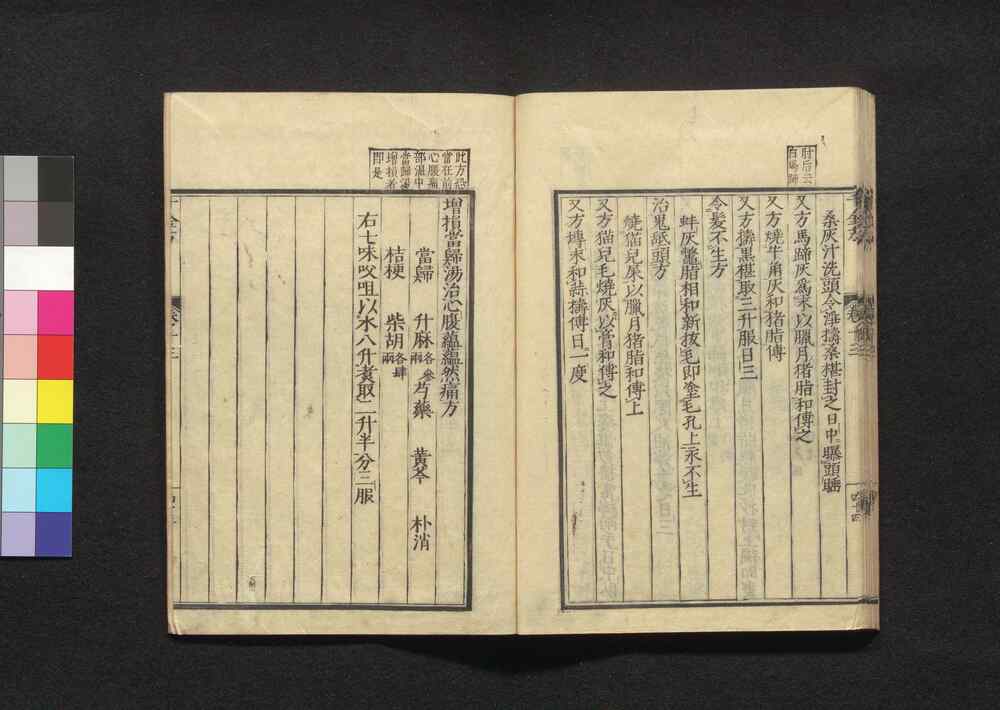 肘后云
白馬蹄
桑灰汁洗頭令淨擣桑椹封之日中曝頭睡
又方馬蹄灰爲末以臘月猪脂和傅之
又方燒牛角灰和猪脂傅
又方擣黒椹取三升服日三
令髪不生方
蚌灰鼈脂相和新拔毛即塗毛孔上永不生
治鬼舐頭方
燒猫兒屎以臘月猪脂和傅上
又方猫兒毛燒灰以膏和傅之
又方塼末和蒜擣傅日一度
此方恐
當在前
心腹痛
部温中
當歸湯
増損者
即是
増損當歸湯治心腹蘊蘊然痛方
當歸 升麻各參兩 芍藥 黄芩 朴消
桔梗 柴胡各肆兩
右七味㕮咀以水八升煮取二升半分三服